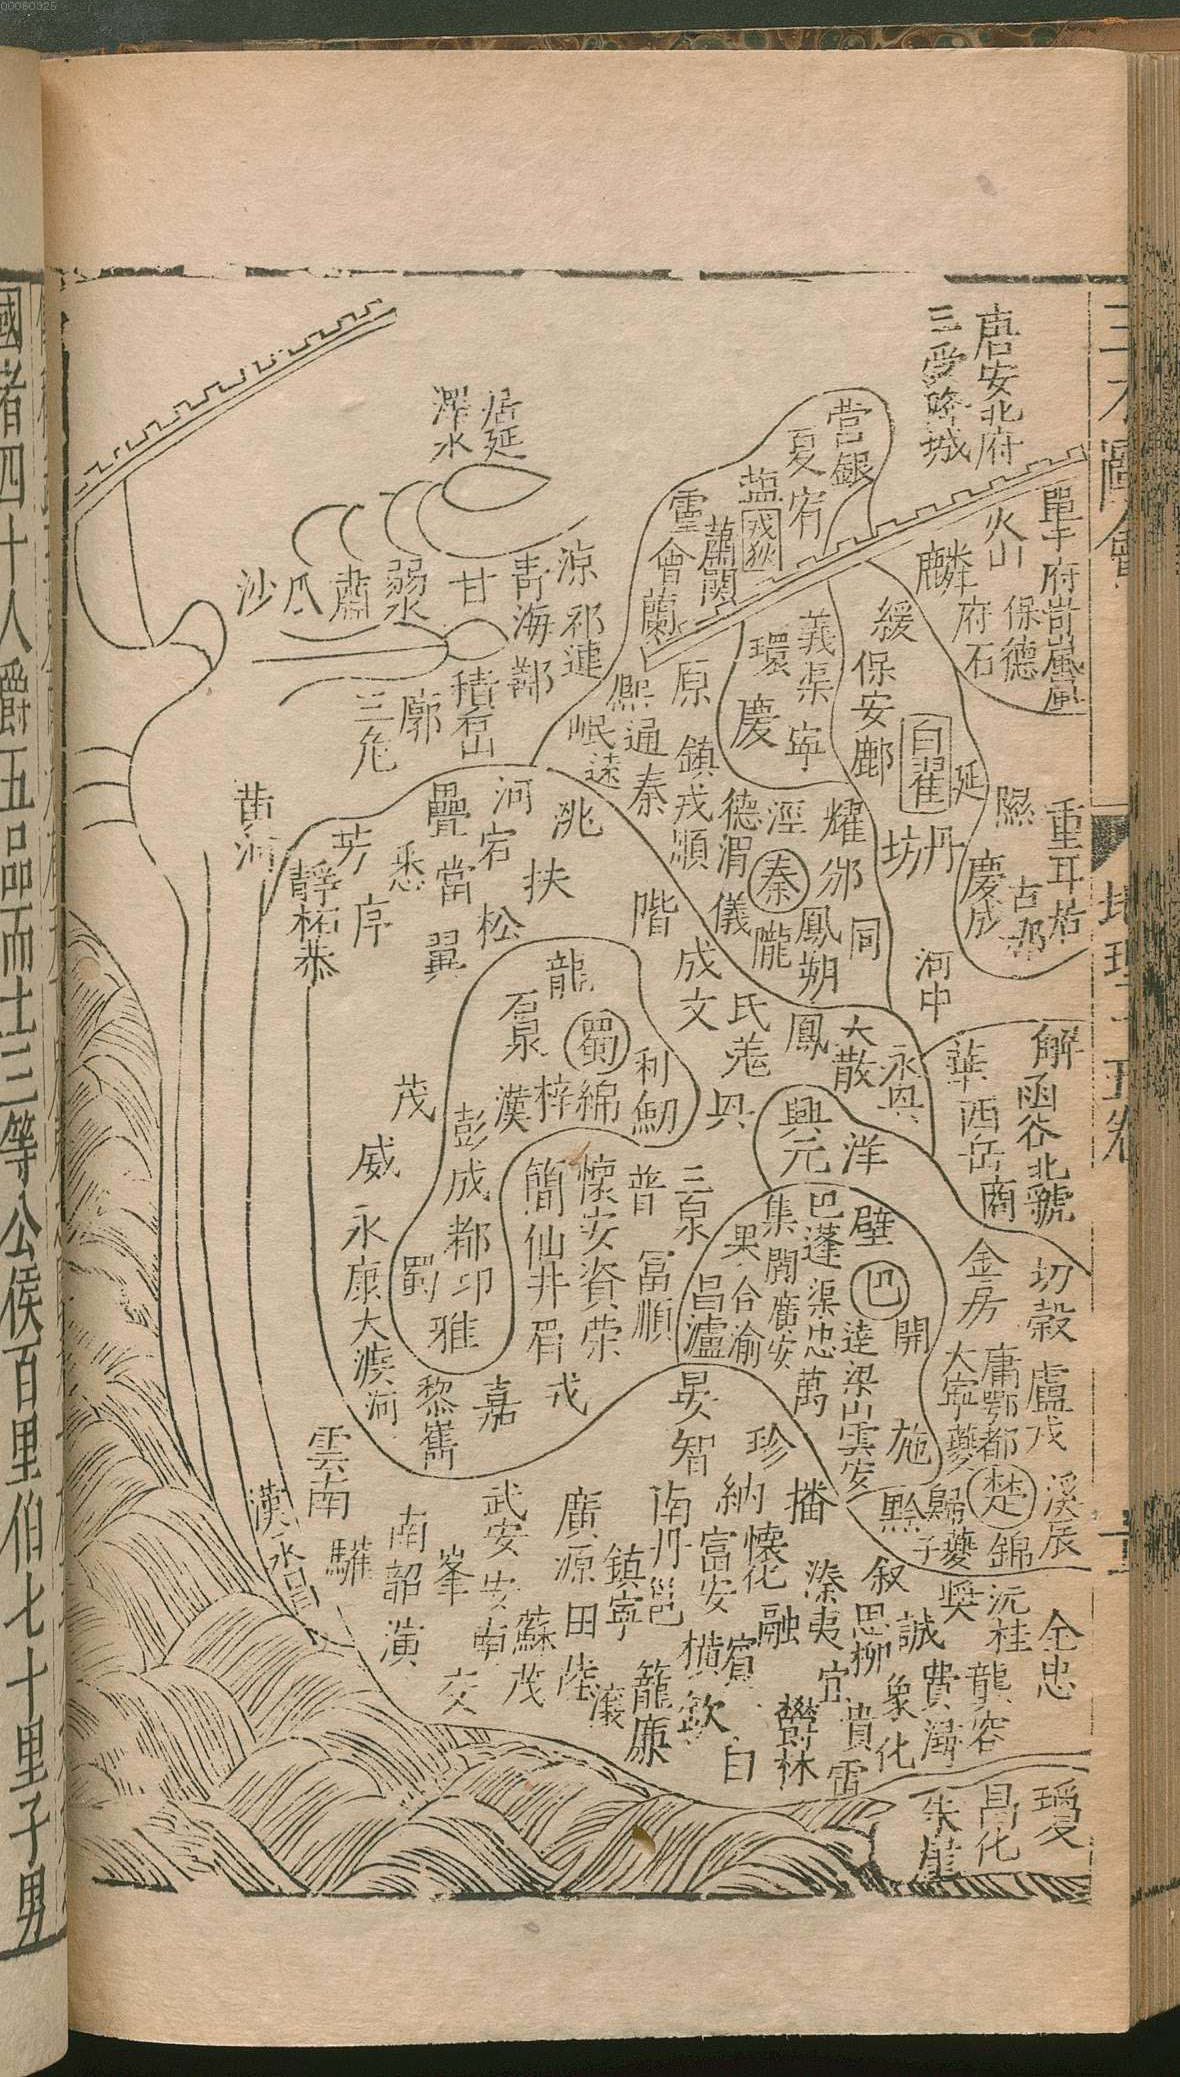 00080325
三才圖會
地理十五卷
唐安北府
三受降城
單于府岢嵐
火山
保德
麟
府石
緩
保安鄜
白翟
延
丹
坊
重耳居
隰
慶成
河中
營銀
夏宥
鹽
戎狄
靈會蘭
蕭關
義渠寧
環
慶
原
熙通秦
鎮戎順
岷
德渭儀
涇
秦
隴
耀
邠
鳳翔
同
居延
澤水
涼
祁連
青海鄯
甘
弱水
肅
瓜
沙
積石山
廓
河
洮
宕
疊
當
悉
芳
序
靜柘恭
扶
松
翼
階
成
文
氐羌
鳳
大散
永興
龍
石泉
蜀
綿
利
梓
漢
彭
成都
卬
雅
蜀
茂
威
永康大渡河
簡仙井
懷安資荣
普
三泉
富順
興元
洋
巴蓬渠忠萬
集
壁
巴
開
達梁山雲安
果合渝
昌瀘
廣安
華西岳
商
解函谷北虢
金房
穀
庸鄂都
盧戎
大寧夔
楚
歸
子
施
黔
錦
溪辰
黎
嘉
戎
雲南
漢永昌
南詔
峯
武安
安南
交
蘇茂
廣源田
鎮寧
南丹邕
智
珍
播
納
富安
懷化
融
溱夷
宜
籠廉
橫
欽
賓
白
鬱林
貴
雷
敘
思柳
象
化
誠
費潯
獎
沅桂
龔容
全忠
朱崖
昌化
瓊
國者四十人爵五品而士三等公侯百里伯七十里子男